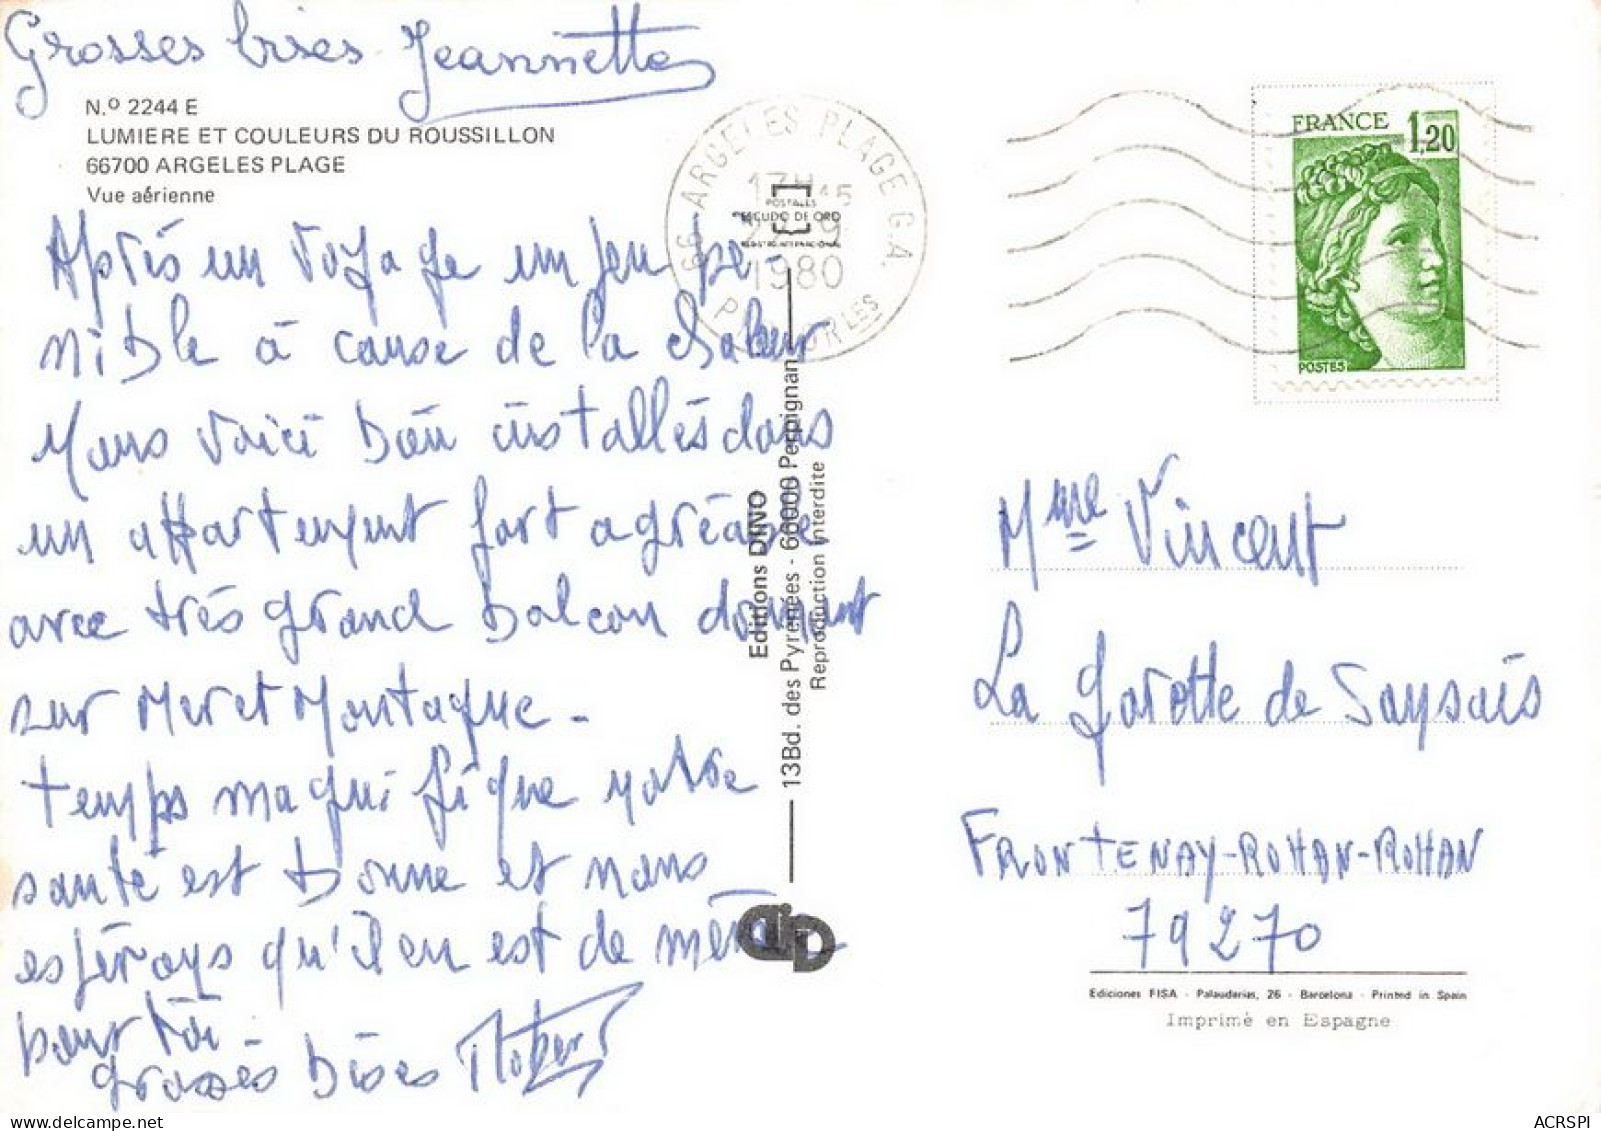 Grosses bises Jeannette
N.º 2244 E
LUMIERE ET COULEURS DU ROUSSILLON
66700 ARGELES PLAGE
Vue aérienne
Après un voyage un peu pé-
nible à cause de la chaleur
nous voici bien installés dans
un appartement fort agréable
avec très grand balcon donnant
sur Mer et Montagne -
temps magnifique notre
santé est bonne et nous
espérons qu'il en est de même
pour toi -
grosses bises Robert
66 ARGELES PLAGE G.A.
17H15
9
1980
POSTALES
ESCUDO DE ORO
Editions DINO
13Bd. des Pyrénées - 66000 Perpignan
Reproduction interdite
FRANCE 1,20
POSTES
Mme Vincent
La Garotte de
FRONTENAY-ROHAN-ROHAN
79270
Ediciones FISA - Palaudarias, 26 - Barcelona - Printed in Spain
Imprimé en Espagne
ACRSPI